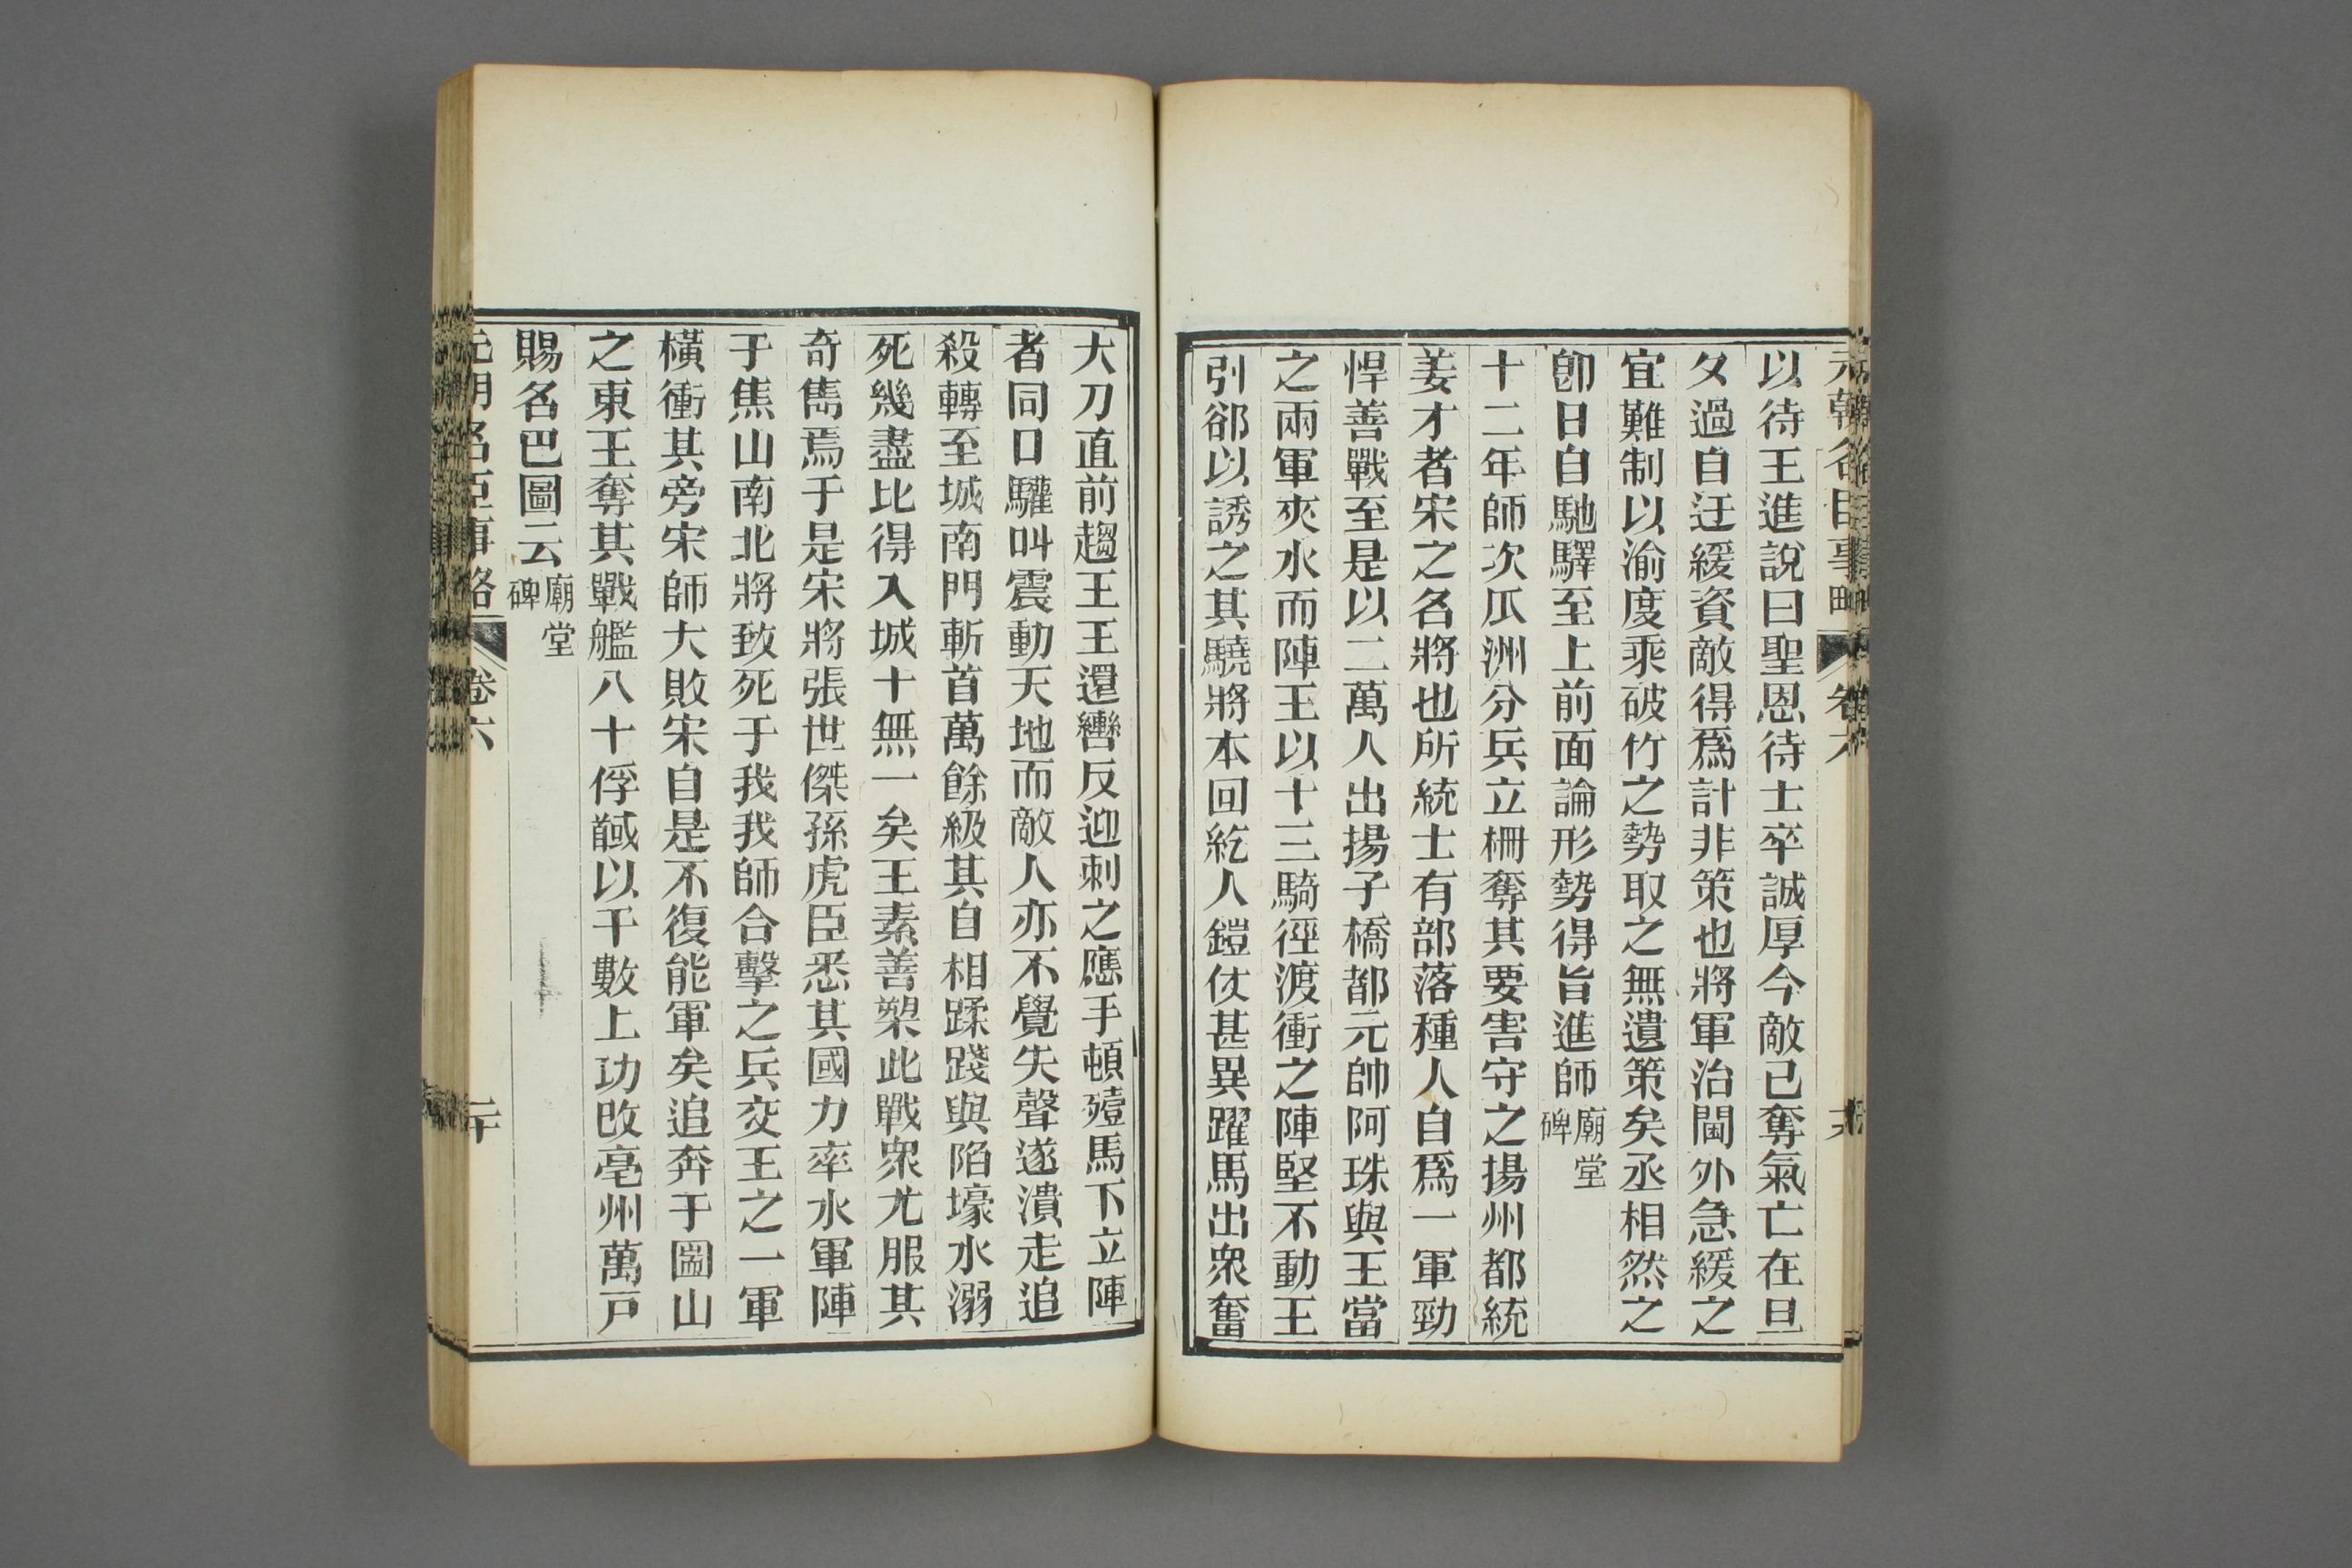 元朝名臣事略 卷六
以待王進說曰聖恩待士卒誠厚今敵已奪氣亡在旦
夕過自迂緩資敵得爲計非策也將軍治閫外急緩之
宜難制以渝度乘破竹之勢取之無遺策矣丞相然之
卽日自馳驛至上前面論形勢得旨進師廟堂碑
十二年師次瓜洲分兵立柵奪其要害守之揚州都統
姜才者宋之名將也所統士有部落種人自爲一軍勁
悍善戰至是以二萬人出揚子橋都元帥阿珠與王當
之兩軍夾水而陣王以十三騎徑渡衝之陣堅不動王
引郤以誘之其驍將本回紇人鎧仗甚異躍馬出衆奮
大刀直前趨王王還轡反迎刺之應手頓殪馬下立陣
者同口驩叫震動天地而敵人亦不覺失聲遂潰走追
殺轉至城南門斬首萬餘級其自相蹂踐與陷壕水溺
死幾盡比得入城十無一矣王素善槊此戰衆尤服其
奇雋焉于是宋將張世傑孫虎臣悉其國力率水軍陣
于焦山南北將致死于我我師合擊之兵交王之一軍
橫衝其旁宋師大敗宋自是不復能軍矣追奔于圌山
之東王奪其戰艦八十俘馘以千數上功改亳州萬戸
賜名巴圖云廟堂碑
元朝名臣事略 卷六 二十